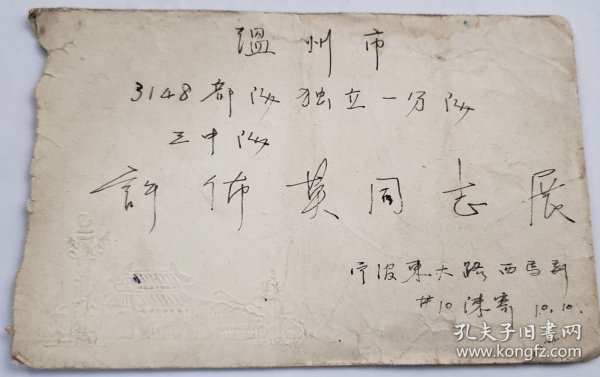 温州市
3148部队独立一分队
三中队
許佈英同志展
宁波東大路西馬弄
#10 陳寄 10.10.
孔夫子旧书网
www.kongfz.com